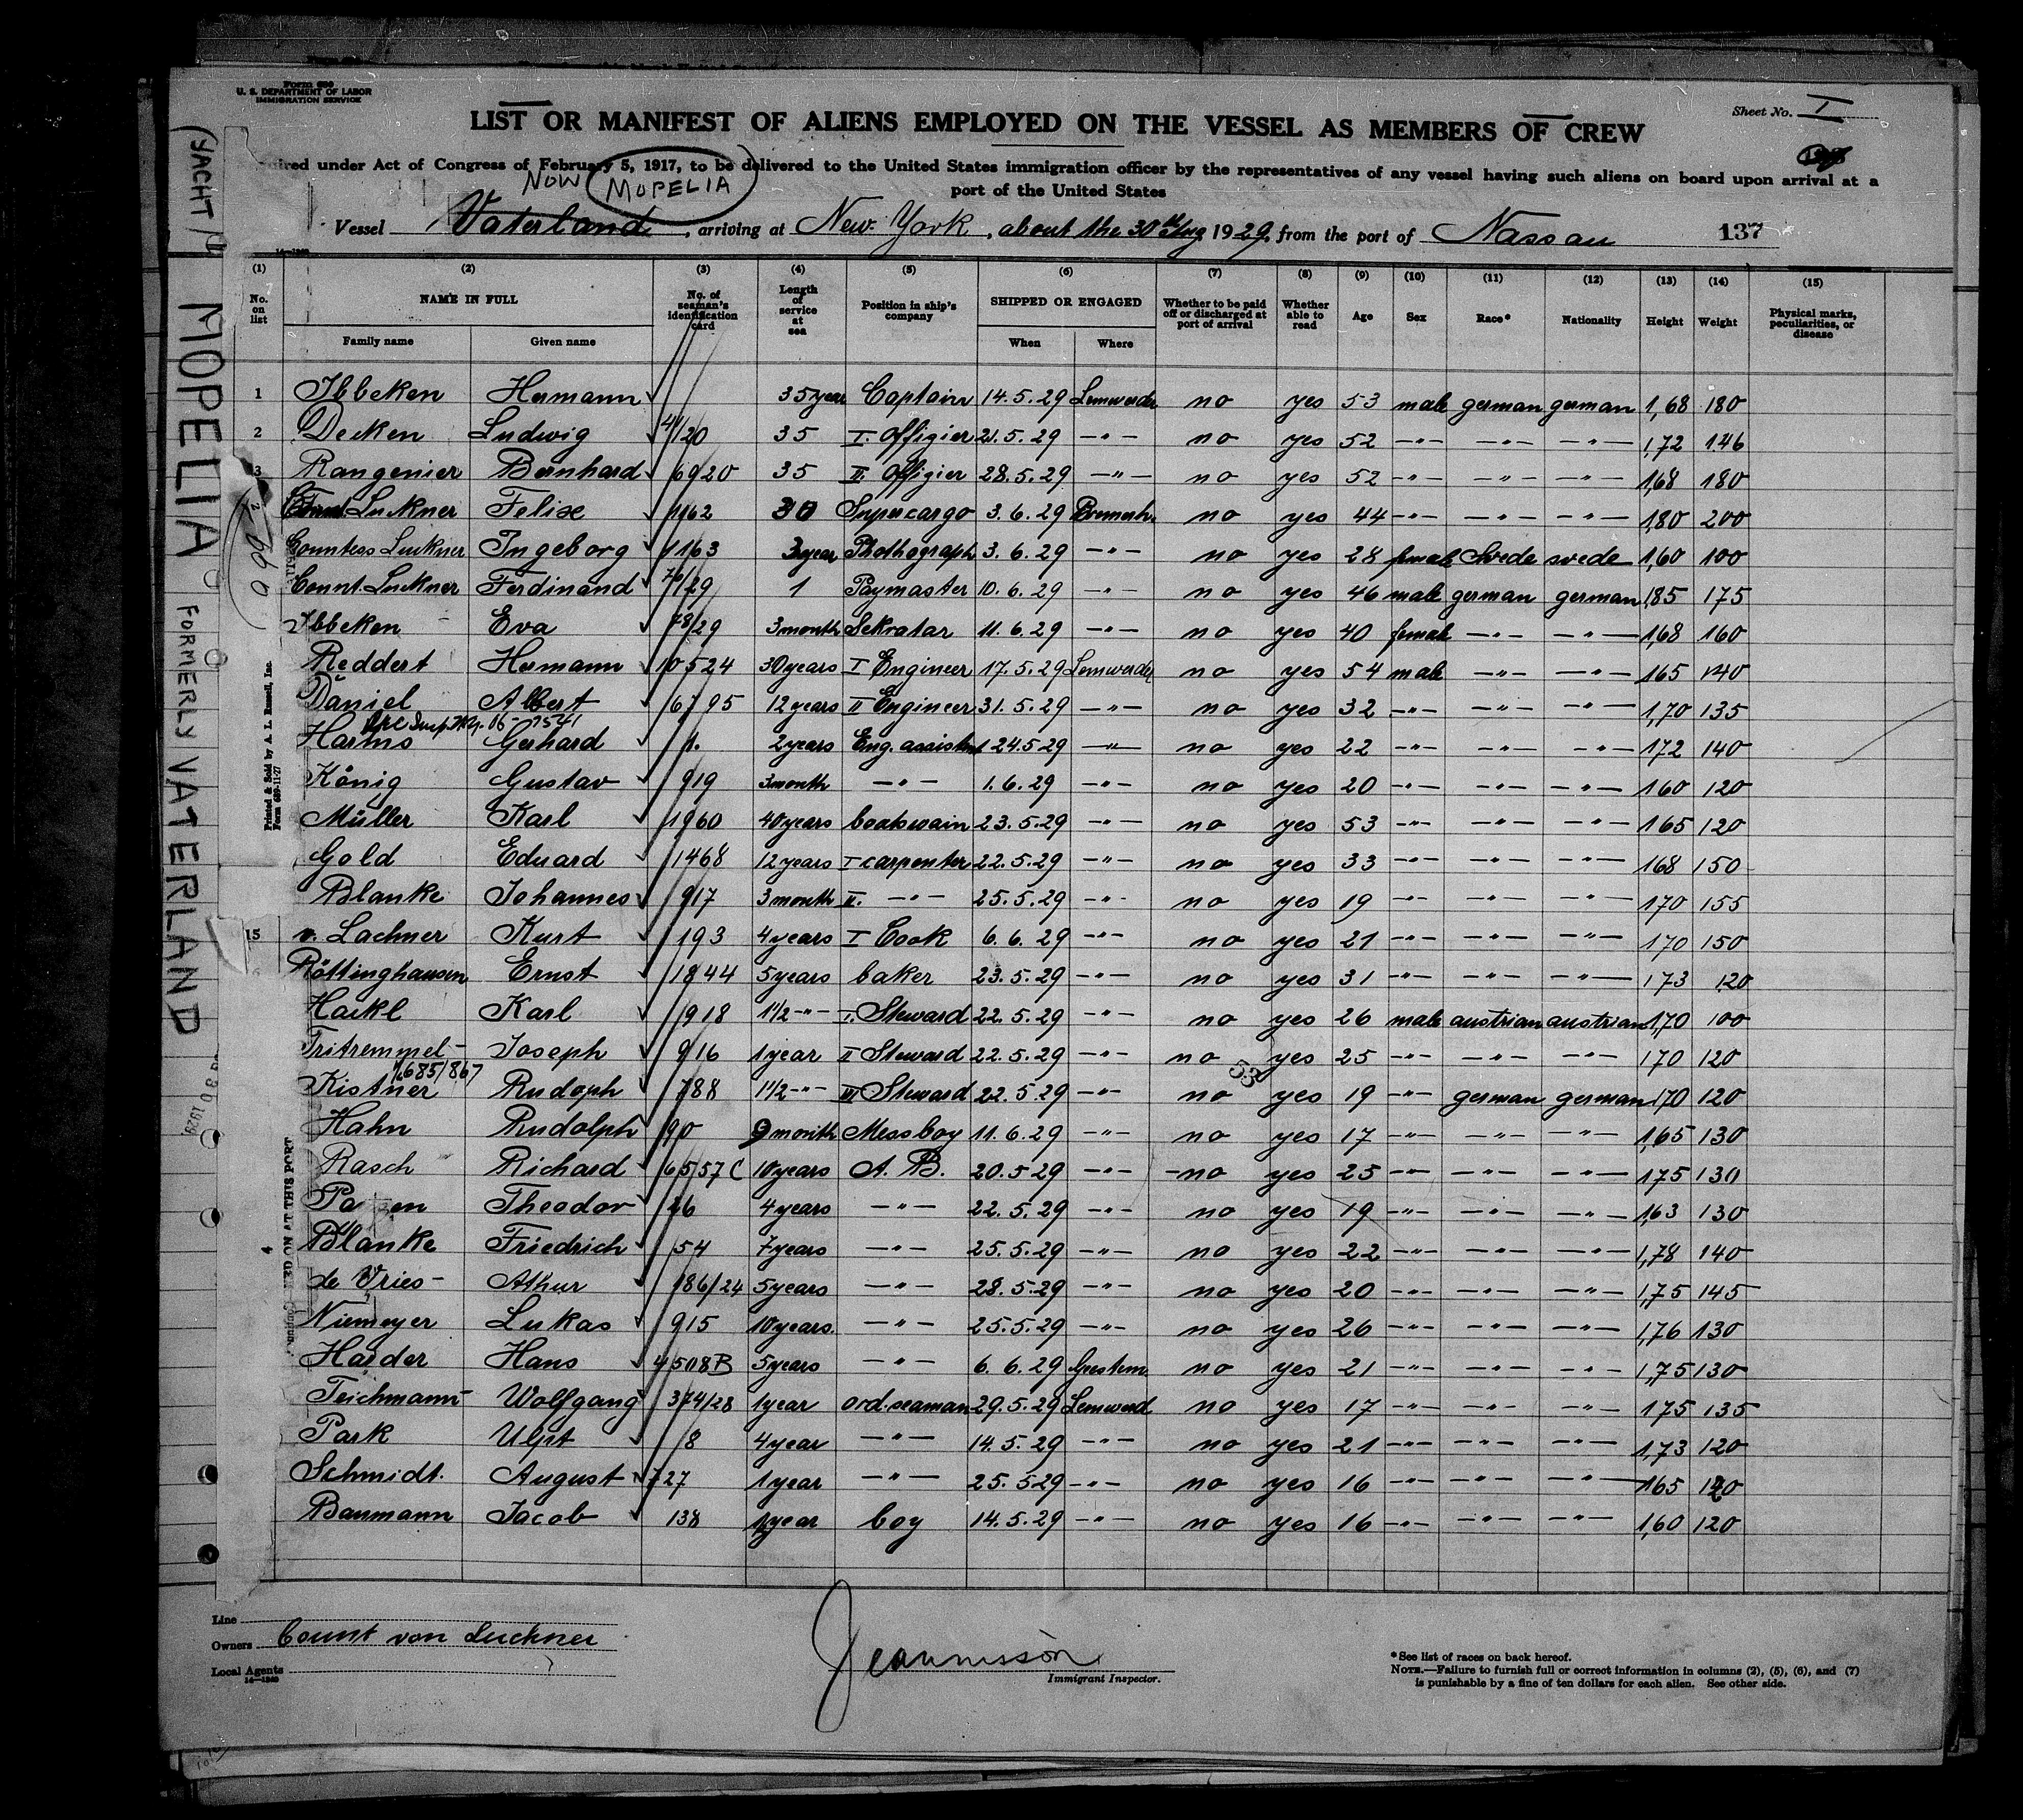 Form 689
U. S. DEPARTMENT OF LABOR
IMMIGRATION SERVICE
Sheet No. I
LIST OR MANIFEST OF ALIENS EMPLOYED ON THE VESSEL AS MEMBERS OF CREW
ired under Act of Congress of February 5, 1917, to be delivered to the United States immigration officer by the representatives of any vessel having such aliens on board upon arrival at a
port of the United States
NOW MOPELIA
Vessel Vaterland, arriving at New-York, about the 30th Aug 1929, from the port of Nassau 137
(YACHT) MOPELIA FORMERLY VATERLAND
(1) (2) (3) (4) (5) (6) (7) (8) (9) (10) (11) (12) (13) (14) (15)
No. on list NAME IN FULL No. of seaman's identification card Length of service at sea Position in ship's company SHIPPED OR ENGAGED Whether to be paid off or discharged at port of arrival Whether able to read Age Sex Race* Nationality Height Weight Physical marks, peculiarities, or disease
Family name Given name When Where
1 Ibbeken Hermann 35 year Captain 14.5.29 Lemwerder no yes 53 male german german 1,68 180
2 Decken Ludwig 41/20 35 I. Offizier 21.5.29 -"- no yes 52 -"- -"- -"- 1,72 146
3 Rangenier Bernhard 6920 35 II. Offizier 28.5.29 -"- no yes 52 -"- -"- -"- 1,68 180
Count Luckner Felix 1162 30 Supercargo 3.6.29 Bremerh. no yes 44 -"- -"- -"- 1,80 200
Countess Luckner Ingeborg 1163 3 year Photograph 3.6.29 -"- no yes 28 female Swede swede 1,60 100
Count. Luckner Ferdinand 76/29 1 Paymaster 10.6.29 -"- no yes 46 male german german 1,85 175
Ibbeken Eva 78/29 3 month Sekratar 11.6.29 -"- no yes 40 female -"- -"- 1,68 160
Reddert Hermann 10524 30 years I Engineer 17.5.29 Lemwerder no yes 54 male -"- -"- 165 140
Däniel Albert 6795 12 years II Engineer 31.5.29 -"- no yes 32 -"- -"- -"- 1,70 135
Harms Gerhard 1. 2 years Eng. assistent 24.5.29 -"- no yes 22 -"- -"- -"- 172 140
König Gustav 919 3 month -"- 1.6.29 -"- no yes 20 -"- -"- -"- 160 120
Müller Karl 1960 40 years boatswain 23.5.29 -"- no yes 53 -"- -"- -"- 165 120
Gold Eduard 1468 12 years I carpenter 22.5.29 -"- no yes 33 -"- -"- -"- 168 150
Blanke Johannes 917 3 month II. -"- 25.5.29 -"- no yes 19 -"- -"- -"- 170 155
15 v. Lachner Kurt 193 4 years I Cook 6.6.29 -"- no yes 21 -"- -"- -"- 170 150
Röttinghausen Ernst 1844 5 years baker 23.5.29 -"- no yes 31 -"- -"- -"- 173 120
Hackl Karl 918 1 1/2 -"- I. Steward 22.5.29 -"- no yes 26 male austrian austrian 1,70 100
Tritremmel Joseph 916 1 year II Steward 22.5.29 -"- no yes 25 -"- -"- -"- 170 120
Kistner Rudoph 788 1 1/2 -"- III Steward 22.5.29 -"- no yes 19 -"- german german 170 120
Hahn Rudolph 90 9 month Messboy 11.6.29 -"- no yes 17 -"- -"- -"- 1,65 130
Rasch Richard 6557 C 10 years A. B. 20.5.29 -"- no yes 25 -"- -"- -"- 175 130
Theodor 26 4 years -"- 22.5.29 -"- no yes 19 -"- -"- -"- 163 130
Blanke Friedrich 54 7 years -"- 25.5.29 -"- no yes 22 -"- -"- -"- 1,78 140
de Vries Athur 186/24 5 years -"- 28.5.29 -"- no yes 20 -"- -"- -"- 1,75 145
Niemeyer Lukas 915 10 years. -"- 25.5.29 -"- no yes 26 -"- -"- -"- 1,76 130
Harder Hans 4508 B 5 years -"- 6.6.29 no yes 21 -"- -"- -"- 1,75 130
Teichmann Wolfgang 374/28 1 year ord. seaman 29.5.29 Lemwerd no yes 17 -"- -"- -"- 175 135
Park 8 4 year -"- 14.5.29 -"- no yes 21 -"- -"- -"- 1,73 120
Schmidt. August 727 1 year -"- 25.5.29 -"- no yes 16 -"- -"- -"- 165 120
Baumann Jacob 138 year boy 14.5.29 -"- no yes 16 -"- -"- -"- 1,60 120
Printed & Sold by A. L. Russell, Inc.
Form 689-11-27
Line
Owners Count von Luckner
Local Agents
14-1240
Immigrant Inspector.
*See list of races on back hereof.
NOTE.—Failure to furnish full or correct information in columns (2), (5), (6), and (7)
is punishable by a fine of ten dollars for each alien. See other side.